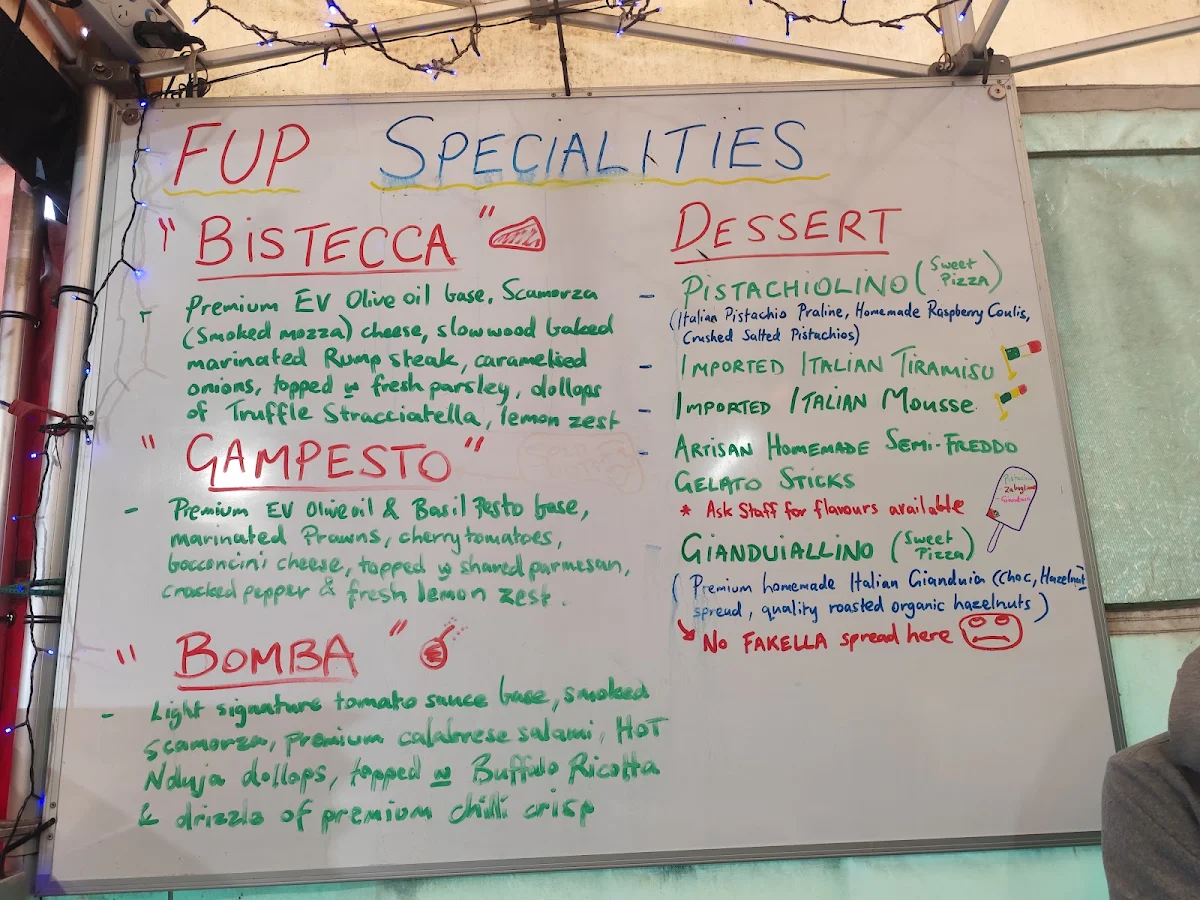 FUP SPECIALITIES
"BISTECCA"
- Premium EV Olive oil base, Scamorza
(Smoked mozza) cheese, slow wood baked
marinated Rump steak, caramelised
onions, topped w fresh parsley, dollops
of Truffle Stracciatella, lemon zest
"GAMPESTO"
- Premium EV Olive oil & Basil Pesto base,
marinated Prawns, cherry tomatoes,
bocconcini cheese, topped w shaved parmesan,
cracked pepper & fresh lemon zest.
"BOMBA"
- Light signature tomato sauce base, smoked
scamorza, premium calabrese salami, HOT
Nduja dollops, topped w Buffalo Ricotta
& drizzle of premium chilli crisp
DESSERT
- PISTACHIOLINO (Sweet
Pizza)
(Italian Pistachio Praline, Homemade Raspberry Coulis,
Crushed Salted Pistachios)
- IMPORTED ITALIAN TIRAMISU
- IMPORTED ITALIAN MOUSSE
- ARTISAN HOMEMADE SEMI-FREDDO
GELATO STICKS
* Ask Staff for flavours available
Pistachio
Zabaglione
Gianduia
GIANDUIALLINO (Sweet
Pizza)
(Premium homemade Italian Gianduia (choc, Hazelnut
spread, quality roasted organic hazelnuts)
No FAKELLA spread here